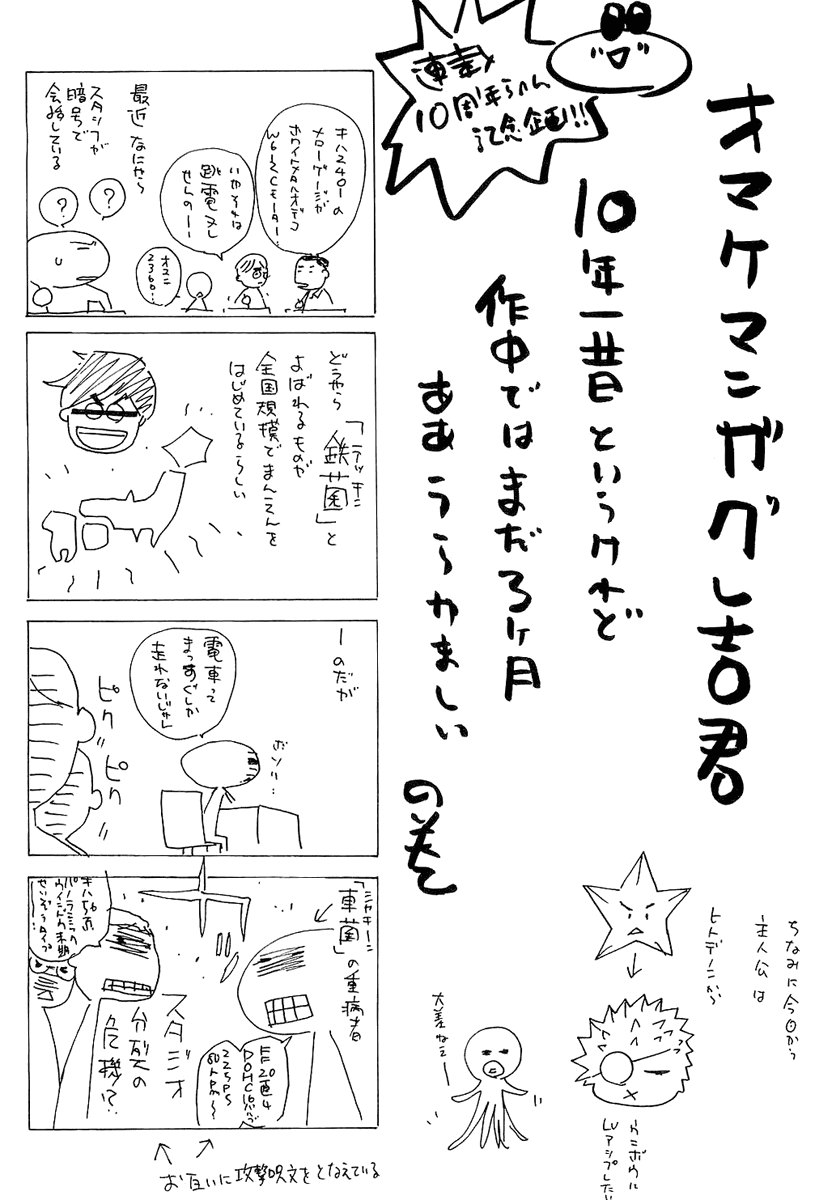 オマケマンガグレ吉君
連載
10周年らへん
記念企画!!
10年一昔というけれど
作中ではまだ3ヶ月
ああうらやましい
の巻
最近なにやら
スタッフが
暗号で
会話している
キハ2401の
メローゲージが
いやそれは
せんの——
オスニ
2360…
?
?
どうやら
「鉄菌」と
テッキン
よばれるものが
全国規模でまんえんを
はじめているらしい
—のだが
電車って
まっすぐしか
走れないじゃん
ボソリ…
ピク
ピク
「車菌」の重病者
シャキーン
キハ56系
パノラミック
ウィンドウ末期
せいぞうタイプ
スタジオ
分裂の
危機!?
直4
DOHC16バルブ
225PS
お互いに攻撃呪文をとなえている
ちなみに今日から
主人公は
ヒトデーンから
ウニボウに
LVアップしたい
大差ねェー